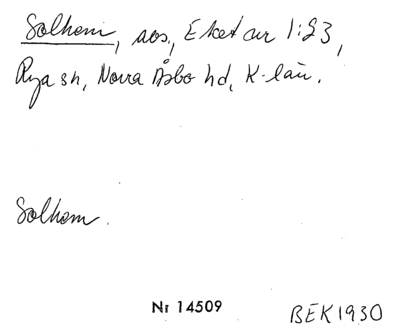 Solhem, aos, Eket av 1:23,
Rya sn, Norra Åsbo hd, K-län.
Solhem.
Nr 14509
BEK1930